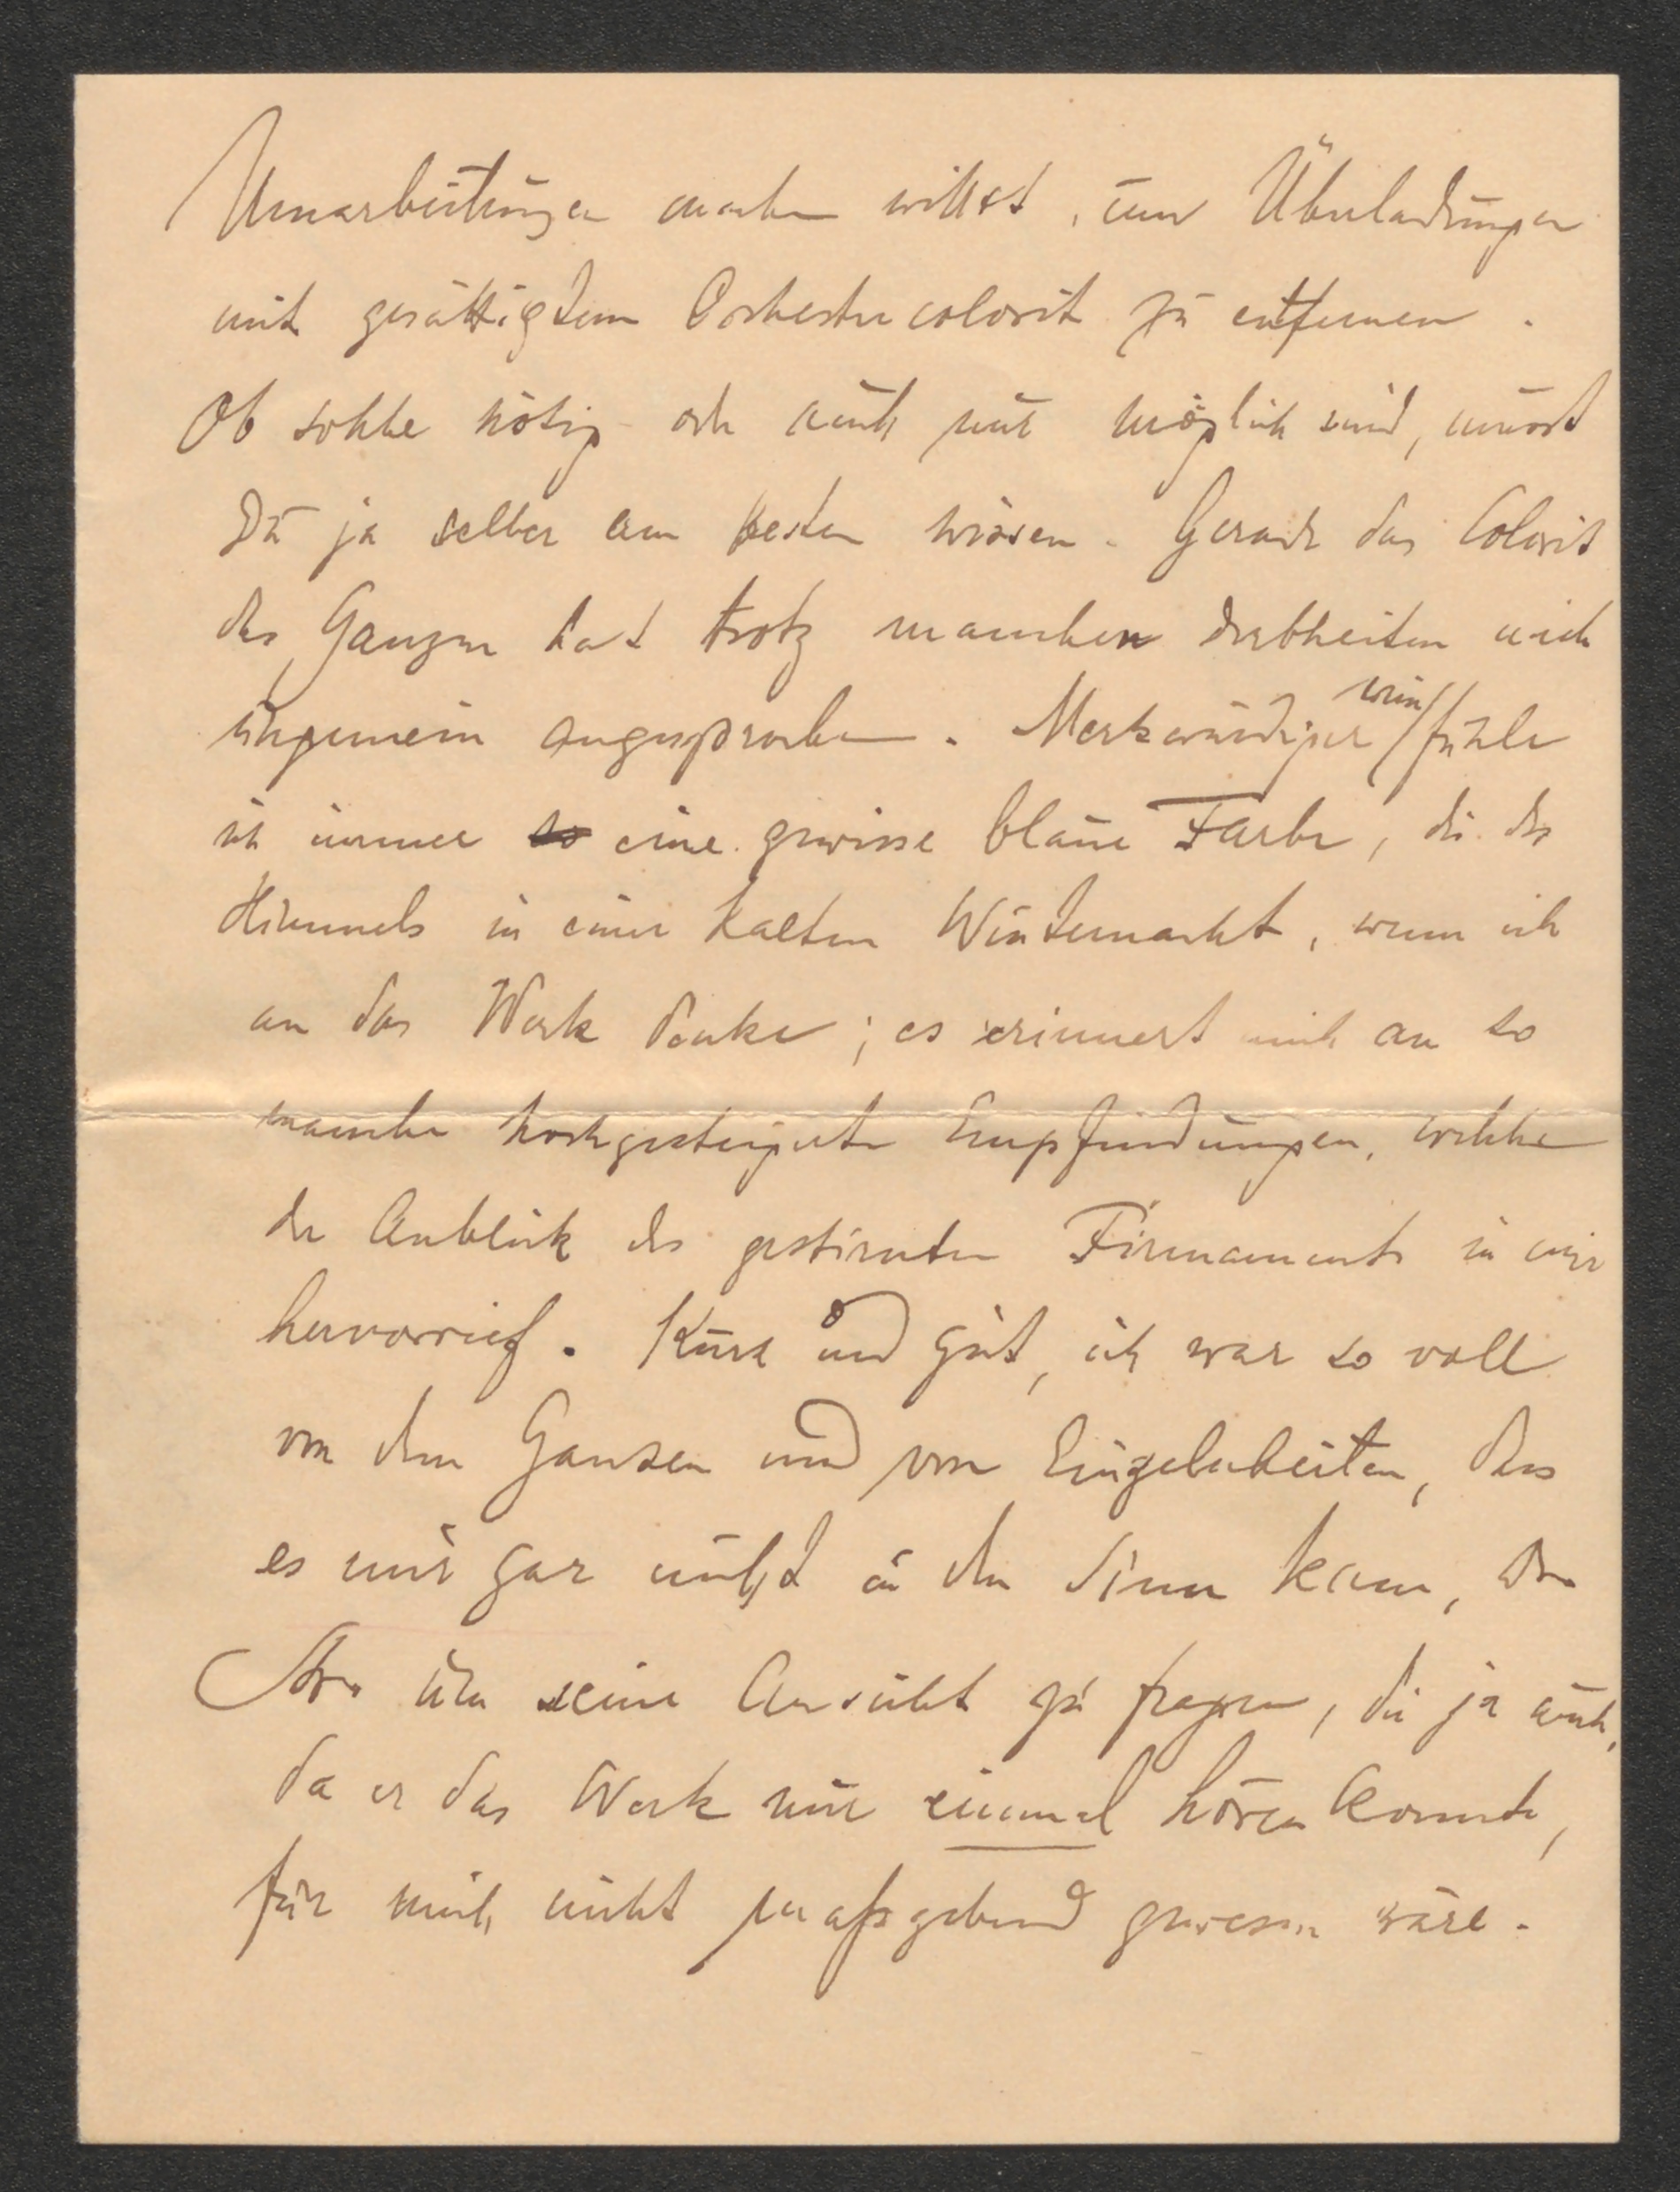 Umarbeitungen machen willst, um Überladungen
mit gesättigtem Orchestercolorit zu entfernen.
Ob solche nötig oder auch nur möglich sind, musst
Du ja selber am besten wissen. Gerade das Colorit
des Ganzen hat trotz manchen Derbheiten mich
ungemein angesprochen. Merkwürdiger weise fühle
ich immer so eine gewisse blaue Farbe, die des
Himmels in einer kalten Winternacht, wenn ich
an das Werk denke; es erinnert mich an so
manche hochgesteigerte Empfindungen, welche
der Anblick des gestirnten Firmaments in mir
hervorrief. Kurz und gut, ich war so voll
von dem Ganzen und von Einzelnheiten, dass
es mir gar nicht in den Sinn kam, den
über seine Ansicht zu fragen, die ja auch,
da er das Werk nur einmal hören konnte,
für mich nicht maßgebend gewesen wäre.